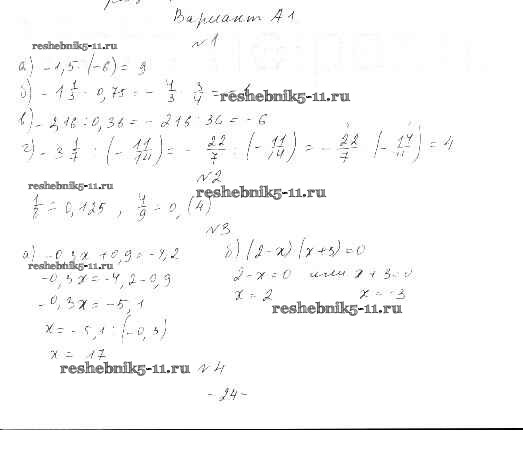 Вариант А1
№1
reshebnik5-11.ru
а) -1,5 · (-6) = 9
б) -1 1/3 · 0,75 = - 4/3 · 3/4 = -1
reshebnik5-11.ru
в) -2,16 : 0,36 = -216 : 36 = -6
г) -3 1/7 : (- 11/14) = - 22/7 : (- 11/14) = - 22/7 · (- 14/11) = 4
№2
reshebnik5-11.ru
reshebnik5-11.ru
1/8 = 0,125 , 4/9 = 0,(4)
№3
а) -0,3x + 0,9 = -4,2
reshebnik5-11.ru
-0,3x = -4,2-0,9
-0,3x = -5,1
x = -5,1 : (-0,3)
x = 17
б) (2-x)(x+3)=0
2-x=0 или x+3=0
x=2 x=-3
reshebnik5-11.ru
reshebnik5-11.ru
№4
-24-